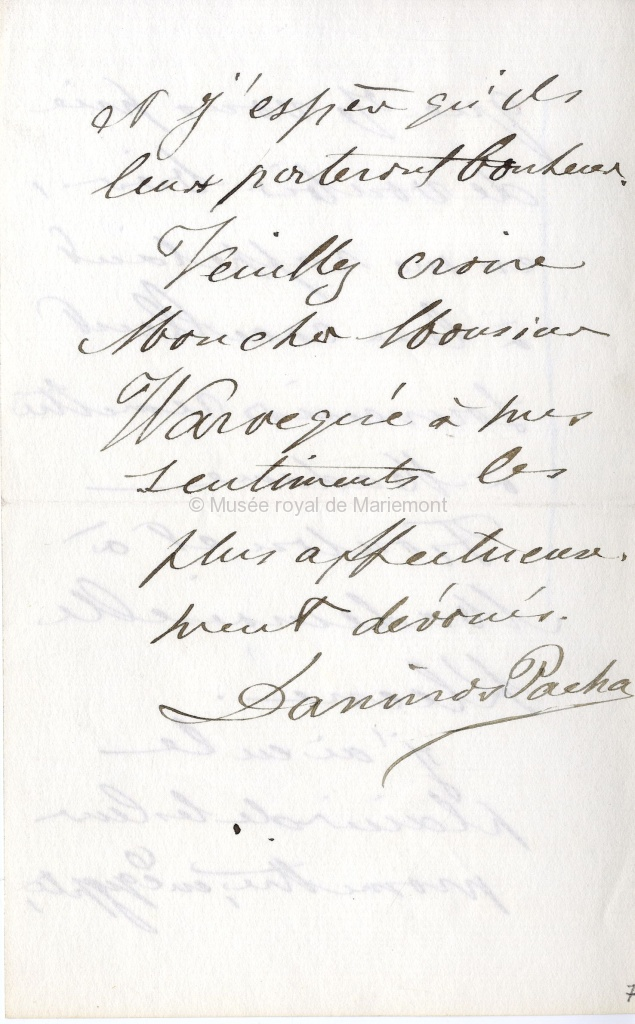 et j'espère qu'ils
leurs porteront bonheur.
Veuillez croire
Mon cher Monsieur
Warocqué à mes
sentiments les
© Musée royal de Mariemont
plus affectueuse-
ment dévoués.
Daninos Pacha
7